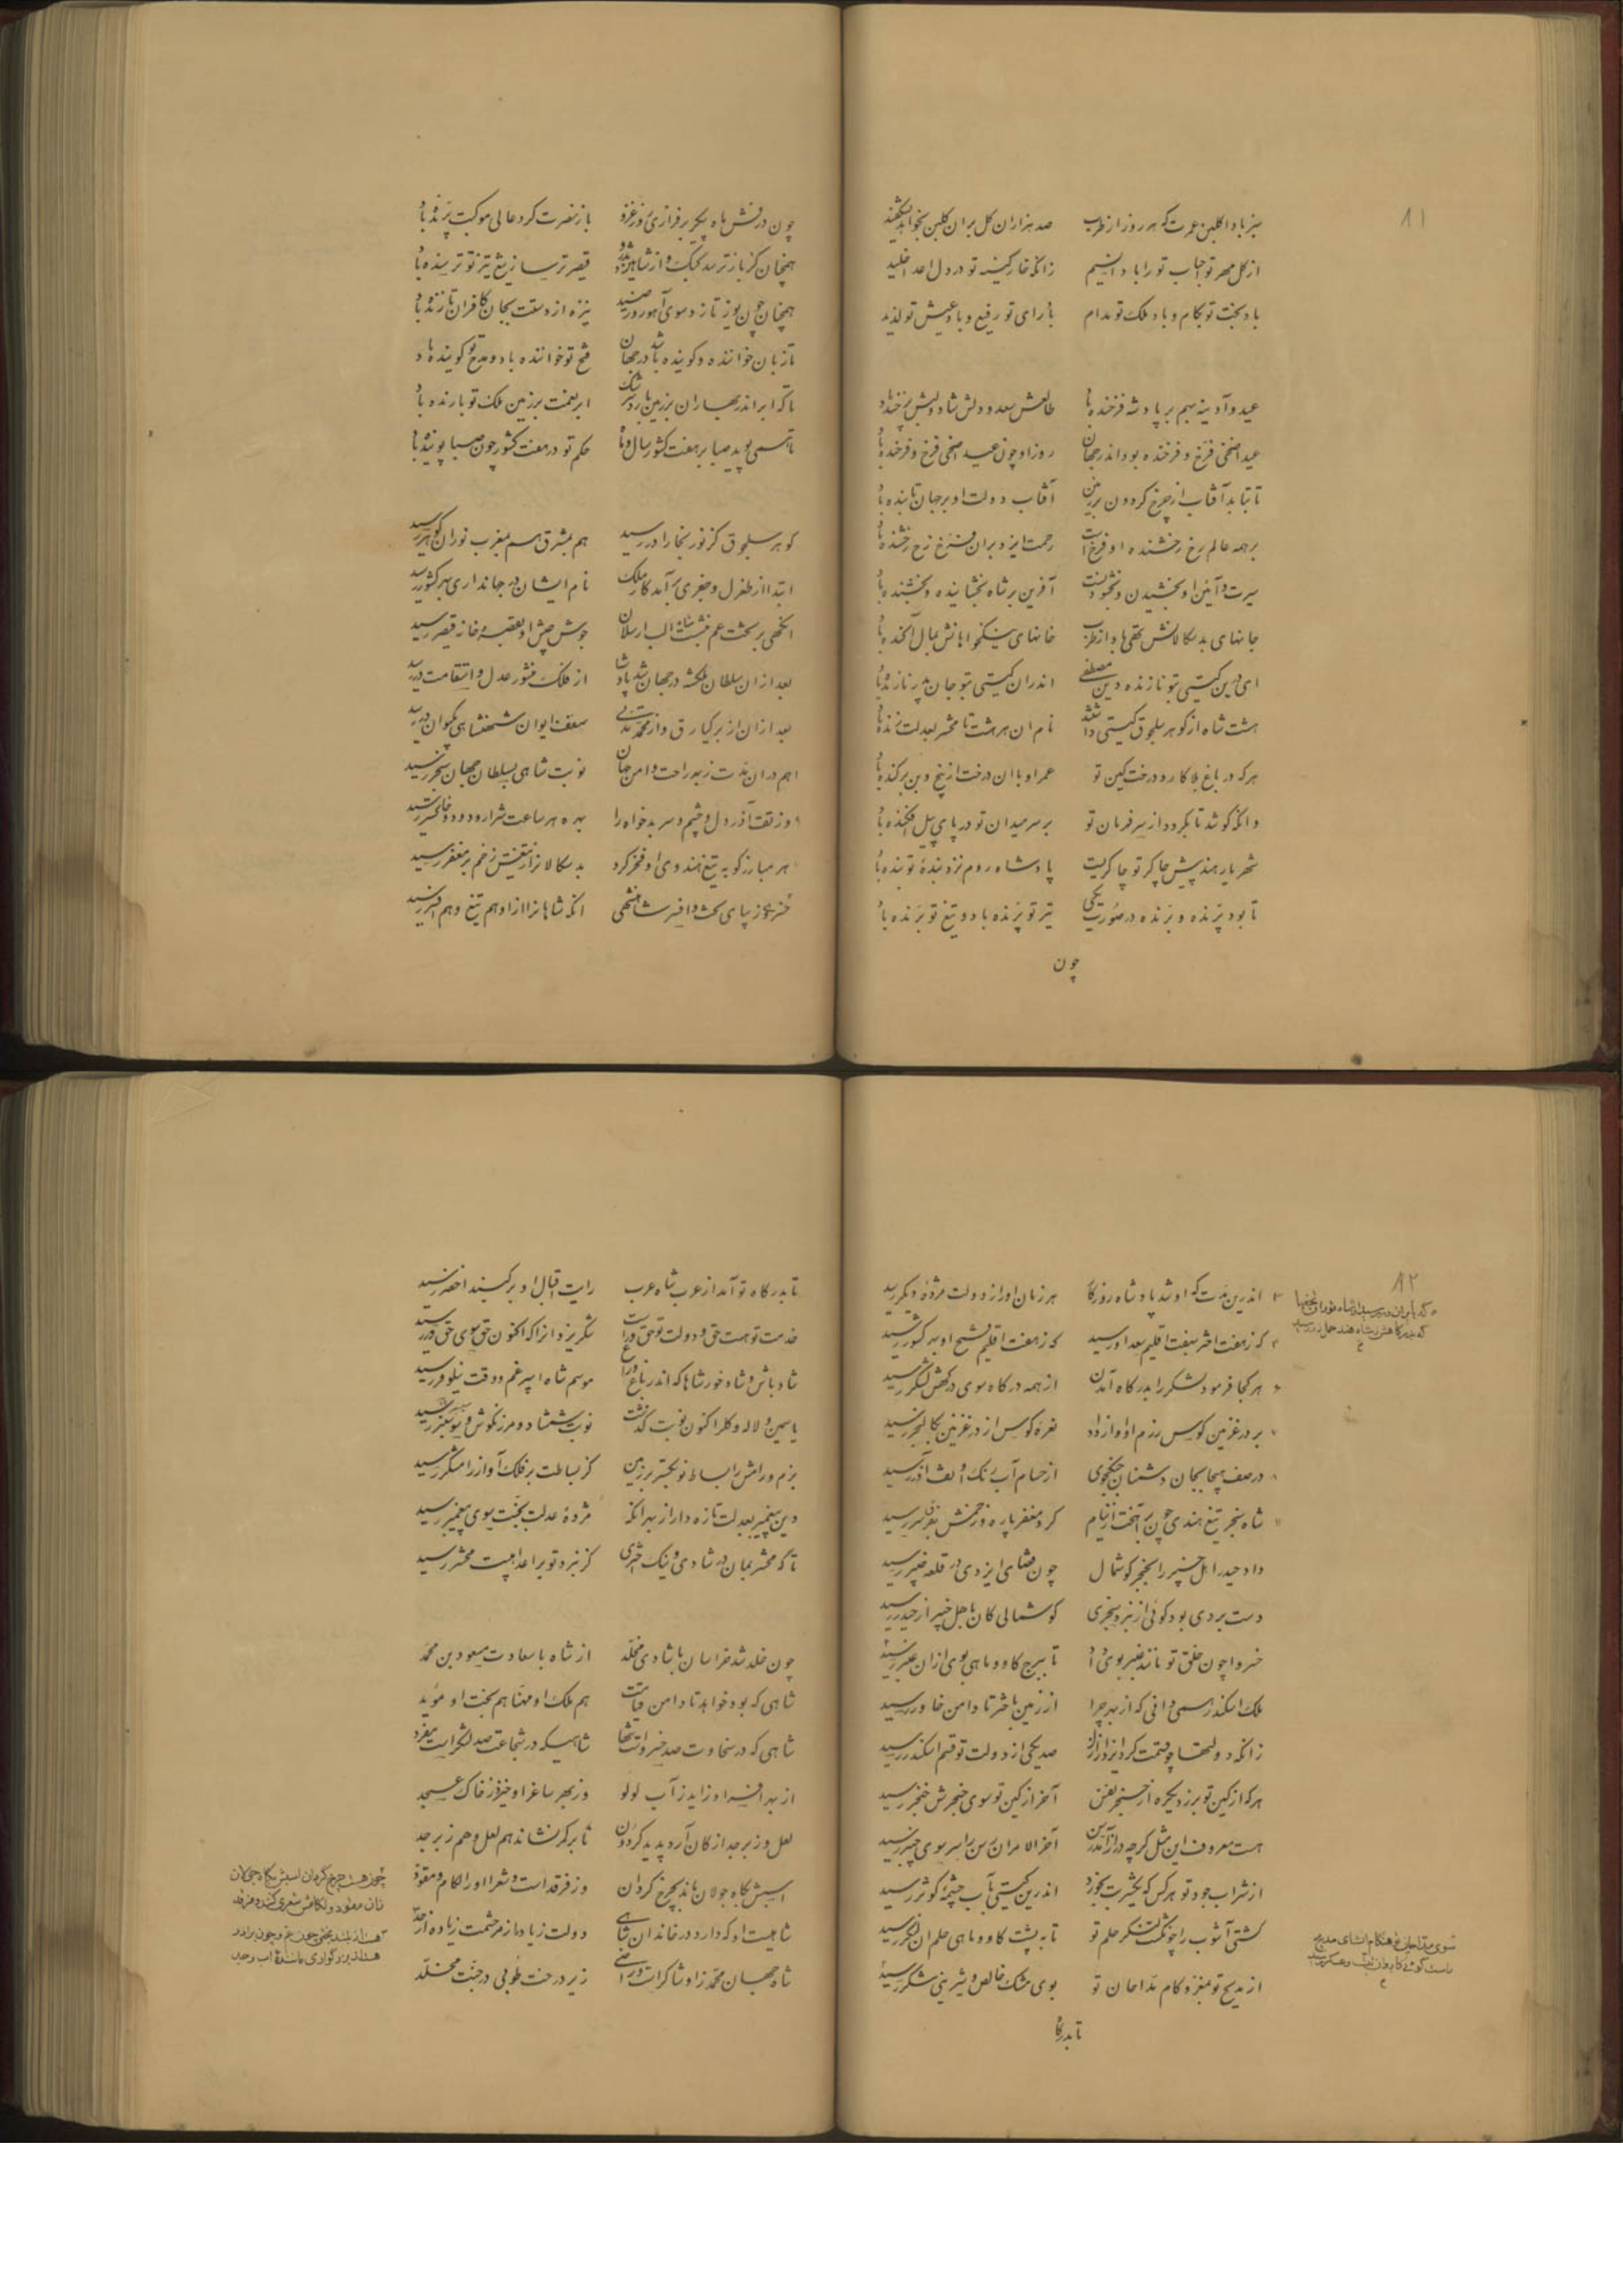 ۸۱
سبز بادا گلبن عمرت که هر روز از طرب صد هزاران گل بر آن گلبن بخواهد بشکفید
از گل مهر تو احباب تو را بادا نسیم زانکه خار کینه تو در دل اعدا خلید
باد بخت تو بکام و باد ملک تو مدام باد رای تو رفیع و باد عیش تو لذیذ
عید و آدینه بهم بر پادشه فرخنده باد طالعش سعد و دلش شاد و لبش پرخنده باد
عید اضحی فرخ و فرخنده بود اندر جهان روز او چون عید اضحی فرخ و فرخنده باد
تا بتابد آفتاب از چرخ گردون بر زمین آفتاب دولت او بر جهان تابنده باد
بر همه عالم رخ رخشنده او فرخ است رحمت ایزد بران فرخ رخ رخشنده باد
سیرت و آئین او بخشیدن و بخشودنست آفرین بر شاه بخشاینده و بخشنده باد
جانهای بدسکالانش تهی باد از طرب خانهای نیکخواهانش بمال آکنده باد
ای زمین گیتی بتو نازنده و دین مصطفی اندران گیتی بتو جان پدر نازنده باد
هشت شاه از گوهر سلجوق گیتی داشتند نام آن هر هشت تا محشر بعدلت زنده باد
هر که در باغ بلا کارد درخت کین تو عمر او با آن درخت از بیخ و بن برکنده باد
وانکه کوشد تا بگردد از سر فرمان تو بر سر میدان تو در پای پیل افکنده باد
شهریار هند پیش چاکر تو چاکریست پادشاه روم نزد بنده تو بنده باد
تا بود پرنده و برنده در صورت یکی تیر تو پرنده باد و تیغ تو برنده باد
چون
چون درفش ماه پیکر برفرازی روز غزو باز نصرت گرد عالی موکبت پرنده باد
همچنان کز باز ترسد کبک و از شاهین تذرو قیصر ترسا ز تیغ تیز تو ترسنده باد
همچنان چون یوز تازد سوی آهو روز صید نیزه از دستت بجان کافران تازنده باد
تا زبان خواننده و گوینده باشد در جهان فتح تو خواننده باد و مدح تو گوینده باد
تا که ابر اندر بهاران بر زمین بارد سرشک ابر نعمت بر زمین ملک تو بارنده باد
تا همی پوید صبا بر هفت کشور سال و ماه حکم تو در هفت کشور چون صبا پوینده باد
گوهر سلجوق کز نور بخارا در رسید هم بمشرق هم بمغرب نور آن گوهر رسید
ابتدا از طغرل و جغری برآمد کار ملک نام ایشان در جهانداری بهر کشور رسید
آنگهی بر تخت عم بنشست شاه الب ارسلان جوش جیش او بقصر و خانه قیصر رسید
بعد ازان سلطان ملکشه در جهان شد پادشا از فلک منشور عدل و استقامت در رسید
بعد ازان از برکیارق وز محمد مدتی سقف ایوان شهنشاهی بکیوان بر رسید
هم دران مدت ز بهر راحت و امن جهان نوبت شاهی بسلطان جهان سنجر رسید
وز تف آذر دل و چشم و سر بدخواه را بهره هر ساعت شرار و دود و خاکستر رسید
هر مبارز کو به تیغ هندوی او فخر کرد بدسکالانرا ز تیغش زخم بر مغفر رسید
خسرو روز بهای تخت و افسر شاهنشهی آنکه شاهانرا ازو هم تیغ و هم افسر رسید
۸۲
اندرین مدت که او شد پادشاه روزگار هر زمان او را ز دولت مژده دیگر رسید
گر ز هفت اختر بهفت اقلیم سعد او رسید که ز هفت اقلیم فتح او بهر کشور رسید
هر کجا فرمود لشکر را بدرگاه آمدن از همه درگاه سوی درگهش لشکر رسید
بر در غزنین کوس رزم او آواز داد نعره کوس از در غزنین بکالنجر رسید
در صف هیجا بجان دشمنان جنگجوی از حسام آب رنگ او تف آذر رسید
شاه سنجر تیغ هندی چون برآهخت از نیام کرد مغفر پاره و زخمش بفرق سر رسید
داد حیدر اهل خیبر را بخنجر گوشمال چون قضای ایزدی در قلعه خیبر رسید
دست بردی بود گوئی از نبرد سنجری گوشمالی کان باهل خیبر از حیدر رسید
خسروا چون خلق تو مانند عنبر بوی داد تا ببرج گاو و ماهی بوی ازان عنبر رسید
ملک اسکندر همی دانی که از بهر چرا از زمین باختر تا دامن خاور رسید
زانکه دولتها چو قسمت کرد ایزد از ازل صد یکی از دولت تو قسم اسکندر رسید
هر که از کین تو برزد یکره از حنجر نفس آخر از کین تو سوی حنجرش خنجر رسید
هست معروف این مثل گرچه دراز آمد رسن آخر الامر آن رسن را سر سوی چنبر رسید
از شراب جود تو هر کس که یکشربت بخورد اندرین گیتی بآب چشمه کوثر رسید
کشتی آشوب را چون گشت لنگر حلم تو تا به پشت گاو و ماهی حلم آن لنگر رسید
از مدیح تو بمغز و کام مداحان تو بوی مشک خالص و شیرینی شکر رسید
تا بدرگا
تا بدرگاه تو آمد از عرب شاه عرب رایت اقبال او بر گنبد اخضر رسید
خدمت تو هست حق و دولت تو حق ورست شکر یزدانرا که اکنون حق سوی حق ور رسید
شاد باش و شاد خور شاها که اندر باغ و راغ موسم شاه اسپرغم و وقت نیلوفر رسید
یاسمین و لاله و گل را کنون نوبت گذشت نوبت شمشاد و مرزنگوش و سیسنبر رسید
بزم و رامش را بساط نو بگستر بر زمین کز بساطت بر فلک آواز رامشگر رسید
دین پیغمبر بعدلت تازه دار از بهر آنکه مژده عدلت بجنت سوی پیغمبر رسید
تا گه محشر بمان در شادی و نیک اختری کز نبرد تو بر اعدا هیبت محشر رسید
چون خلد شد خراسان با شادی مخلد از شاه با سعادت مسعود بن محمد
شاهی که بود خواهد تا دامن قیامت هم ملک او مهنا هم بخت او موید
شاهی که در سخاوت صد خسرو است تنها شاهیکه در شجاعت صد لشکر است مفرد
از بهر افسر او زاید ز آب لولو وز بهر ساغر او خیزد ز خاک عسجد
لعل و زبرجد از کان آرد پدید گردون تا بر کمر نشاند هم لعل و هم زبرجد
اسبش گاه جولان ماند بچرخ گردان وز فرقد است و شعرا او را لگام و مقود
شاهیست او که دارد در خاندان شاهی دولت زیاده از مر حشمت زیاده از حد
شاه جهان محمد زو شاکرست و راضی زیر درخت طوبی در جنت مخلد